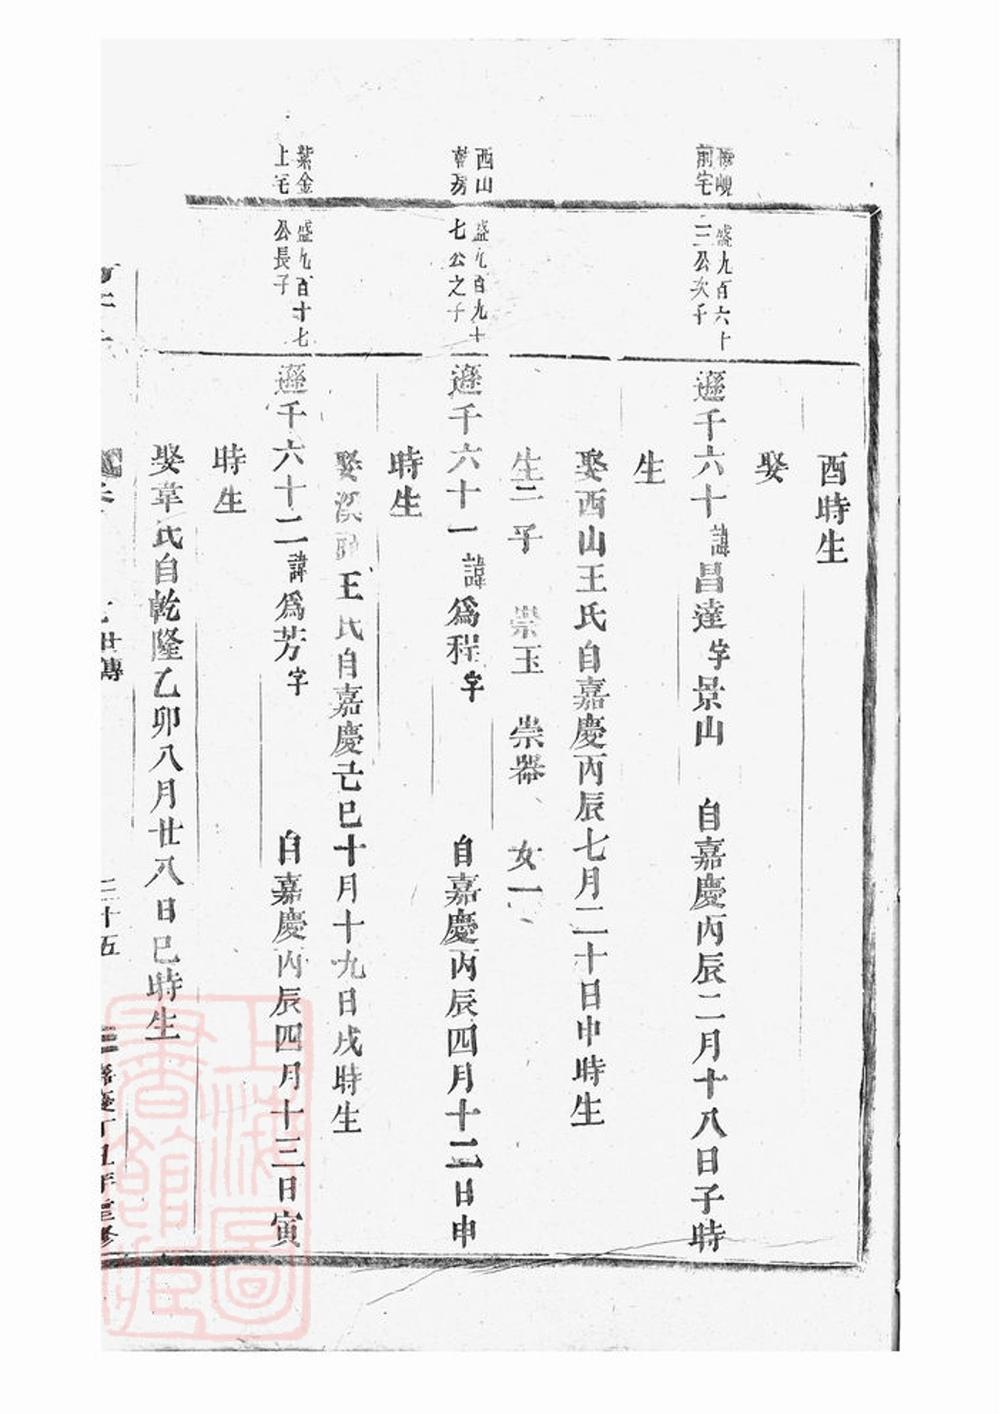 酉時生
娶
前宅
盛九百六十
三公次子
遜千六十諱昌達字景山 自嘉慶丙辰二月十八日子時
生
娶西山王氏自嘉慶丙辰七月二十日申時生
生二子 崇玉 崇器 女一
西山
前房
盛九百九十
七公之子
遜千六十一諱爲程字 自嘉慶丙辰四月十二日申
時生
娶溪王氏自嘉慶己巳十月十九日戌時生
紫金
上宅
盛九百十七
公長子
遜千六十二諱爲芳字 自嘉慶丙辰四月十三日寅
時生
娶韋氏自乾隆乙卯八月廿八日巳時生
世傳
二十五
嘉慶丁丑年重修
上海圖書館藏